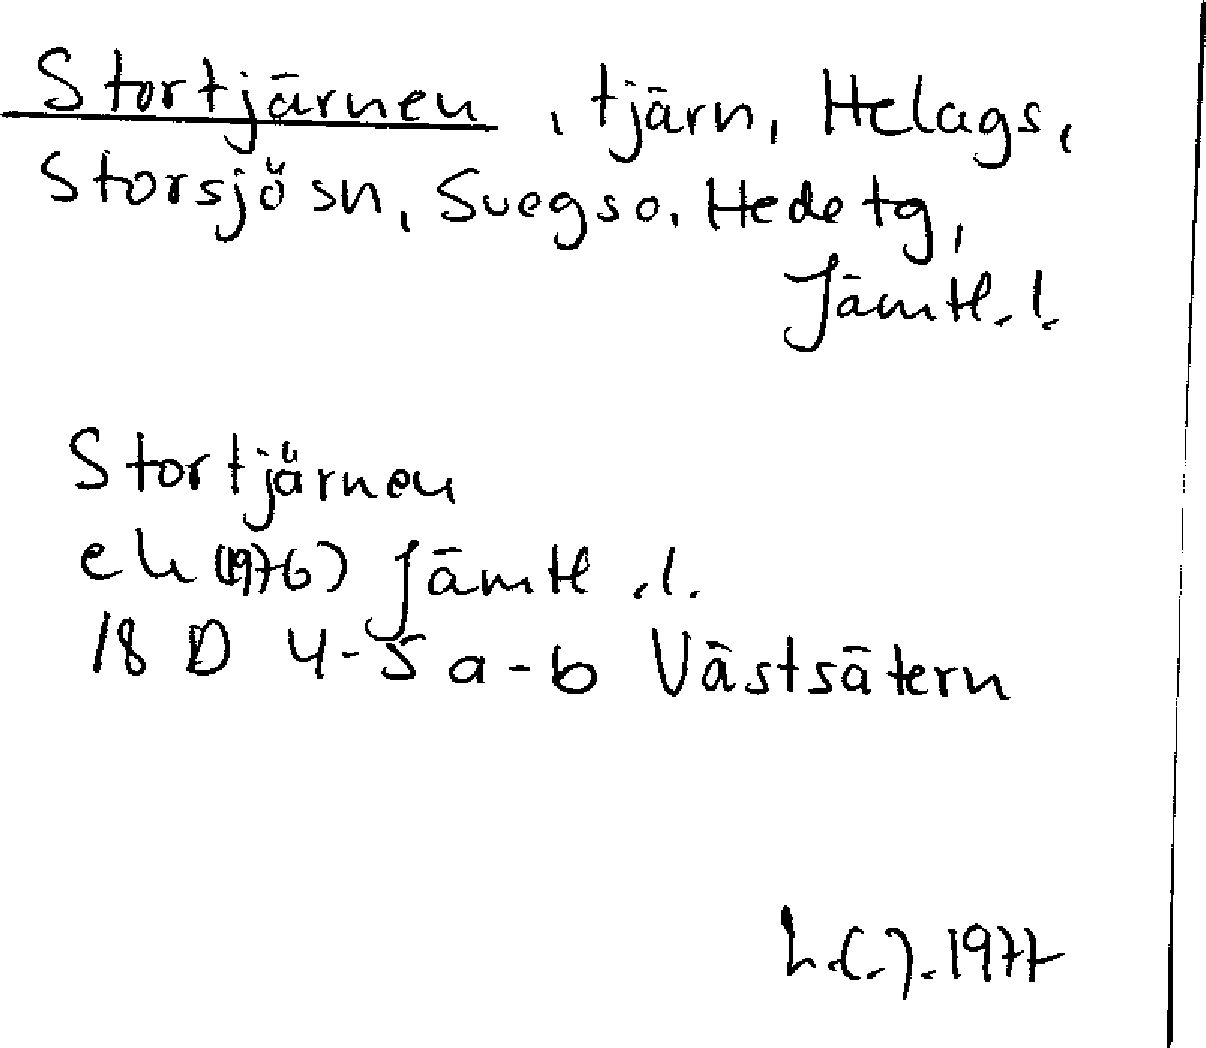 Stortjärnen, tjärn, Helags,
Storsjö sn, Svegs o. Hede tg,
Jämtl. l.
Stortjärnen
ek (1976) Jämtl. l.
18 D 4-5 a-b Västsätern
L.C.J. 1977